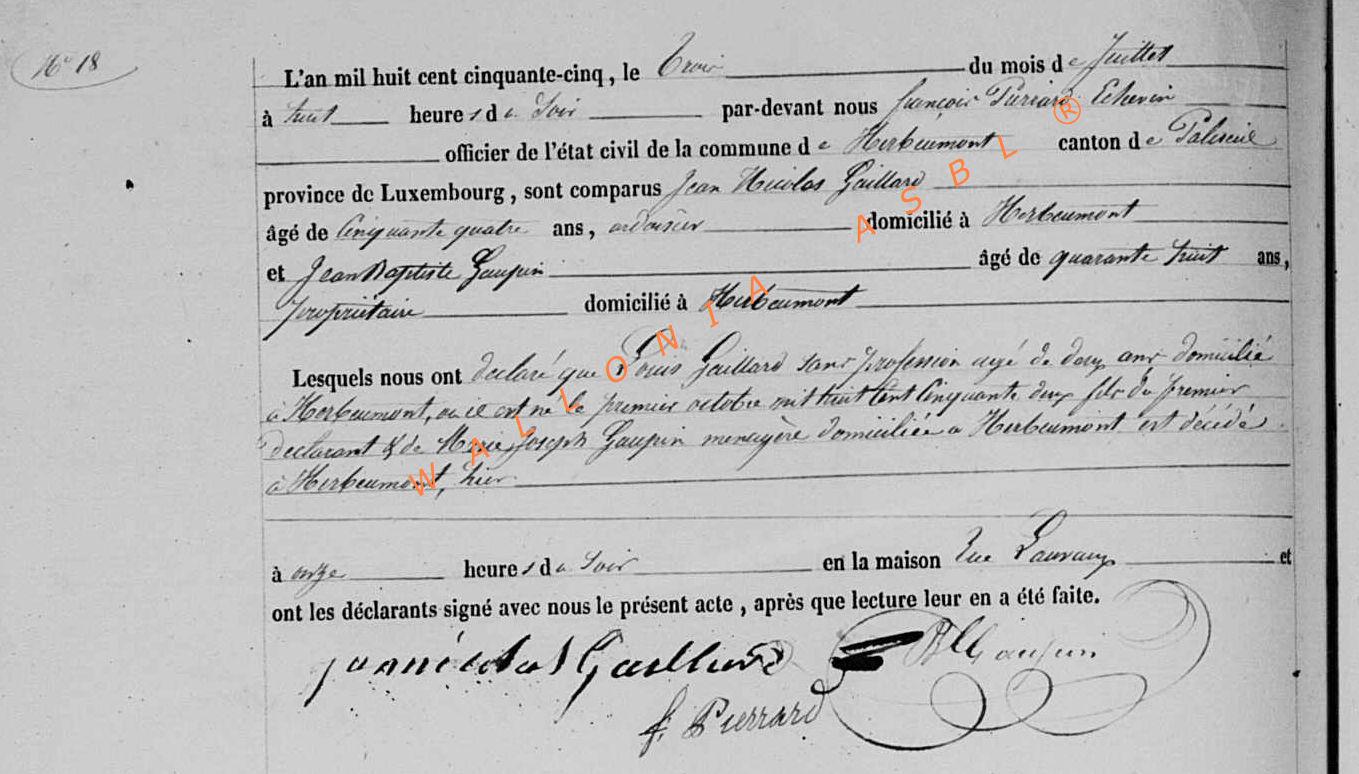 N° 18
L'an mil huit cent cinquante-cinq, le Trois du mois de Juillet
à huit heures du Soir par-devant nous françois Pierrard Echevin
officier de l'état civil de la commune de Herbeumont canton de Paliseul
province de Luxembourg, sont comparus Jean Nicolas Gaillard
âgé de Cinquante quatre ans, ardoisier domicilié à Herbeumont
et Jean Baptiste Gaupin âgé de quarante huit ans,
propriétaire domicilié à Herbeumont
Lesquels nous ont declaré que Louis Gaillard sans profession agé de deux ans domicilié
à Herbeumont, ou il est né le premier octobre mil huit Cent Cinquante deux fils du premier
declarant & de Marie Joseph Gaupin menagère domiciliée a Herbeumont est décédé
à Herbeumont, hier
à onze heures du Soir en la maison rue Lauvaux et
ont les déclarants signé avec nous le présent acte, après que lecture leur en a été faite.
jeannicolas Gaillard Gaupin
f. Pierrard
WALLONIA ASBL ®